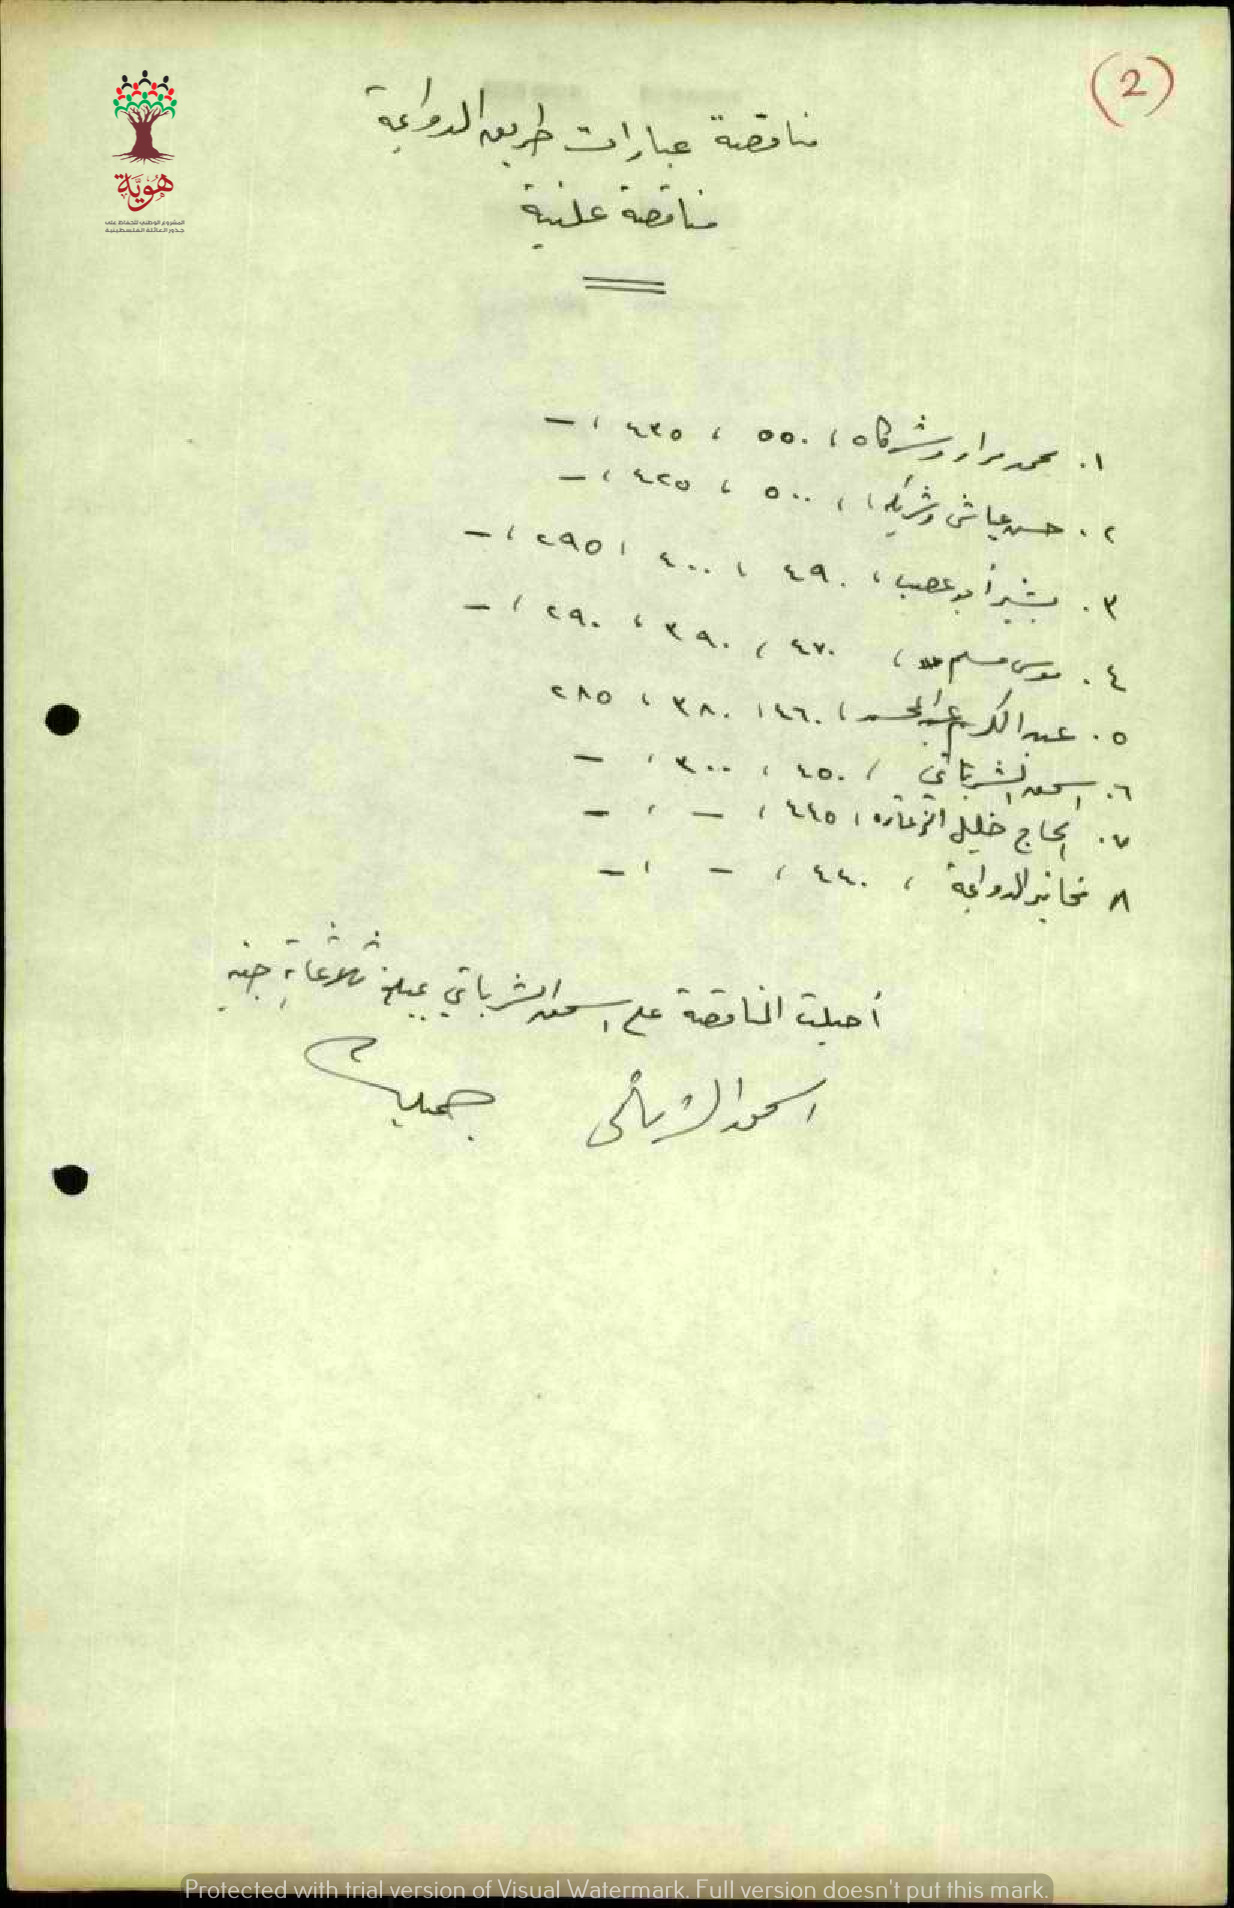 (2)
هُوِيَّة
المشروع الوطني للحفاظ على
جذور العائلة الفلسطينية
مناقصة عبارات طريق الدوايمة
مناقصة علنية
١. محمد مراد وشركاه ، ٥٥٠ ، ٤٣٥ ، –
٢. حسن عياش وشريكه ، ٥٠٠ ، ٤٢٥ ، –
٣. بشير أبو عصب ، ٤٩٠ ، ٤٠٠ ، ٢٩٥ ، –
٤. موسى مسلم ، ٤٧٠ ، ٣٩٠ ، ٢٩٠ ، –
٥. عبد الكريم عبد المحسن ، ٤٦٠ ، ٣٨٠ ، ٢٨٥
٦. اسحق الشرباتي ، ٤٥٠ ، ٣٠٠ ، –
٧. الحاج خليل ، ٤٤٥ ، – ، –
٨ مخاتير الدوايمة ، ٤٤٠ ، – ، –
أحيلت المناقصة على اسحق الشرباتي بمبلغ ثلاثماية جنيه
اسحق الشرباتي
Protected with trial version of Visual Watermark. Full version doesn't put this mark.